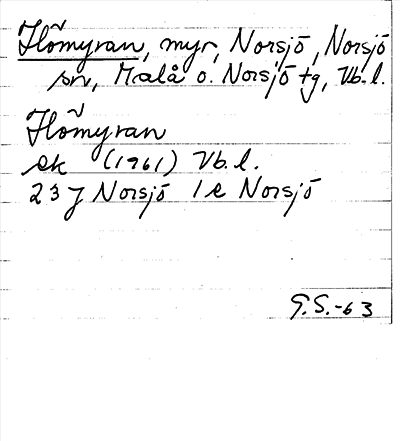 Flõmyran, myr, Norsjö, Norsjö
sn, Malå o. Norsjö tg, Vb. l.
Flõmyran
ek (1961) Vb. l.
23 J Norsjö 1e Norsjö
G.S.-63